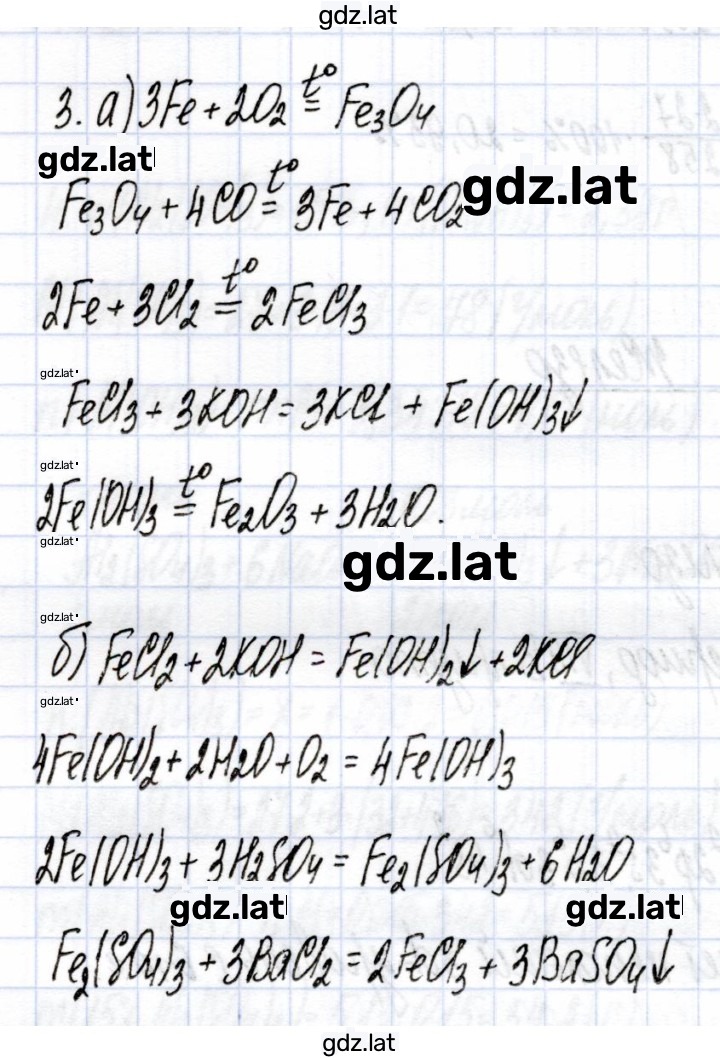 gdz.lat
3. а) 3Fe + 2O₂ =^t° Fe₃O₄
gdz.lat
Fe₃O₄ + 4CO =^t° 3Fe + 4CO₂
gdz.lat
2Fe + 3Cl₂ =^t° 2FeCl₃
gdz.lat
FeCl₃ + 3KOH = 3KCl + Fe(OH)₃↓
gdz.lat
2Fe(OH)₃ =^t° Fe₂O₃ + 3H₂O.
gdz.lat
gdz.lat
gdz.lat
б) FeCl₂ + 2KOH = Fe(OH)₂↓ + 2KCl
gdz.lat
4Fe(OH)₂ + 2H₂O + O₂ = 4Fe(OH)₃
2Fe(OH)₃ + 3H₂SO₄ = Fe₂(SO₄)₃ + 6H₂O
gdz.lat gdz.lat
Fe₂(SO₄)₃ + 3BaCl₂ = 2FeCl₃ + 3BaSO₄↓
gdz.lat